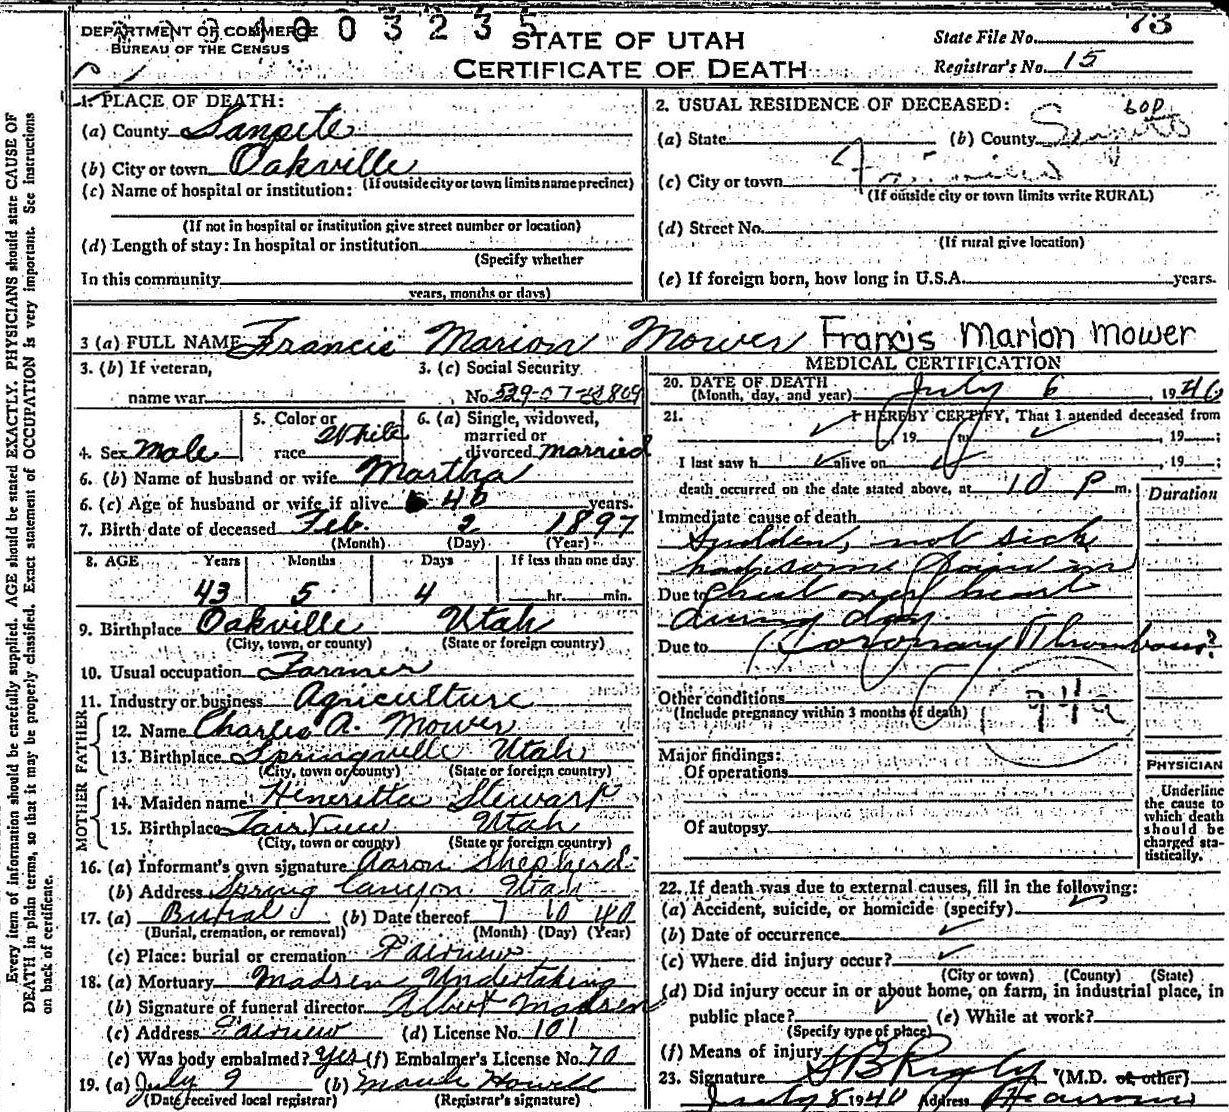 DEPARTMENT OF COMMERCE
BUREAU OF THE CENSUS
0 0 3 2 3 5
STATE OF UTAH
CERTIFICATE OF DEATH
State File No. 73
Registrar's No. 15
Every item of information should be carefully supplied. AGE should be stated EXACTLY. PHYSICIANS should state CAUSE OF
DEATH in plain terms, so that it may be properly classified. Exact statement of OCCUPATION is very important. See instructions
on back of certificate.
1. PLACE OF DEATH:
(a) County Sanpete
(b) City or town Oakville
(If outside city or town limits name precinct)
(c) Name of hospital or institution:
(If not in hospital or institution give street number or location)
(d) Length of stay: In hospital or institution
(Specify whether
In this community
years, months or days)
2. USUAL RESIDENCE OF DECEASED:
(a) State (b) County Sanpete
(c) City or town
(If outside city or town limits write RURAL)
(d) Street No.
(If rural give location)
(e) If foreign born, how long in U.S.A. years.
3 (a) FULL NAME Francis Marion Mower Francis Marion Mower
3. (b) If veteran,
name war
3. (c) Social Security
No. 529-07-
4. Sex Male
5. Color or
race White
6. (a) Single, widowed,
married or
divorced married
6. (b) Name of husband or wife Martha
6. (c) Age of husband or wife if alive 40 years.
7. Birth date of deceased Feb. 2 1897
(Month) (Day) (Year)
8. AGE Years Months Days If less than one day
43 5 4 hr. min.
9. Birthplace Oakville Utah
(City, town, or county) (State or foreign country)
10. Usual occupation Farmer
11. Industry or business Agriculture
FATHER
12. Name Charles A. Mower
13. Birthplace Springville Utah
(City, town or county) (State or foreign country)
MOTHER
14. Maiden name Heneretta Stewart
15. Birthplace Fair View Utah
(City, town or county) (State or foreign country)
16. (a) Informant's own signature Aaron Shepherd
(b) Address Spring Canyon Utah
17. (a) Burial (b) Date thereof 7 10 40
(Burial, cremation, or removal) (Month) (Day) (Year)
(c) Place: burial or cremation Fairview
18. (a) Mortuary Madsen Undertaking
(b) Signature of funeral director Albert Madsen
(c) Address Fairview (d) License No. 101
(e) Was body embalmed? yes (f) Embalmer's License No. 70
19. (a) July 9 (b) Maude Howell
(Date received local registrar) (Registrar's signature)
MEDICAL CERTIFICATION
20. DATE OF DEATH
(Month, day, and year) July 6, 1940
21. I HEREBY CERTIFY, That I attended deceased from
, 19 to , 19 ;
I last saw h alive on , 19 ;
death occurred on the date stated above, at 10 P m.
Duration
Immediate cause of death
Sudden, not sick
had some pain in
Due to chest over heart
during day.
Due to (Coronary Thrombosis?
Other conditions
(Include pregnancy within 3 months of death)
94a
Major findings:
Of operations
Of autopsy
PHYSICIAN
Underline
the cause to
which death
should be
charged sta-
tistically.
22. If death was due to external causes, fill in the following:
(a) Accident, suicide, or homicide (specify)
(b) Date of occurrence
(c) Where did injury occur?
(City or town) (County) (State)
(d) Did injury occur in or about home, on farm, in industrial place, in
public place? (e) While at work?
(Specify type of place)
(f) Means of injury
23. Signature S B Rigby (M.D. or other)
July 8 1940 Address